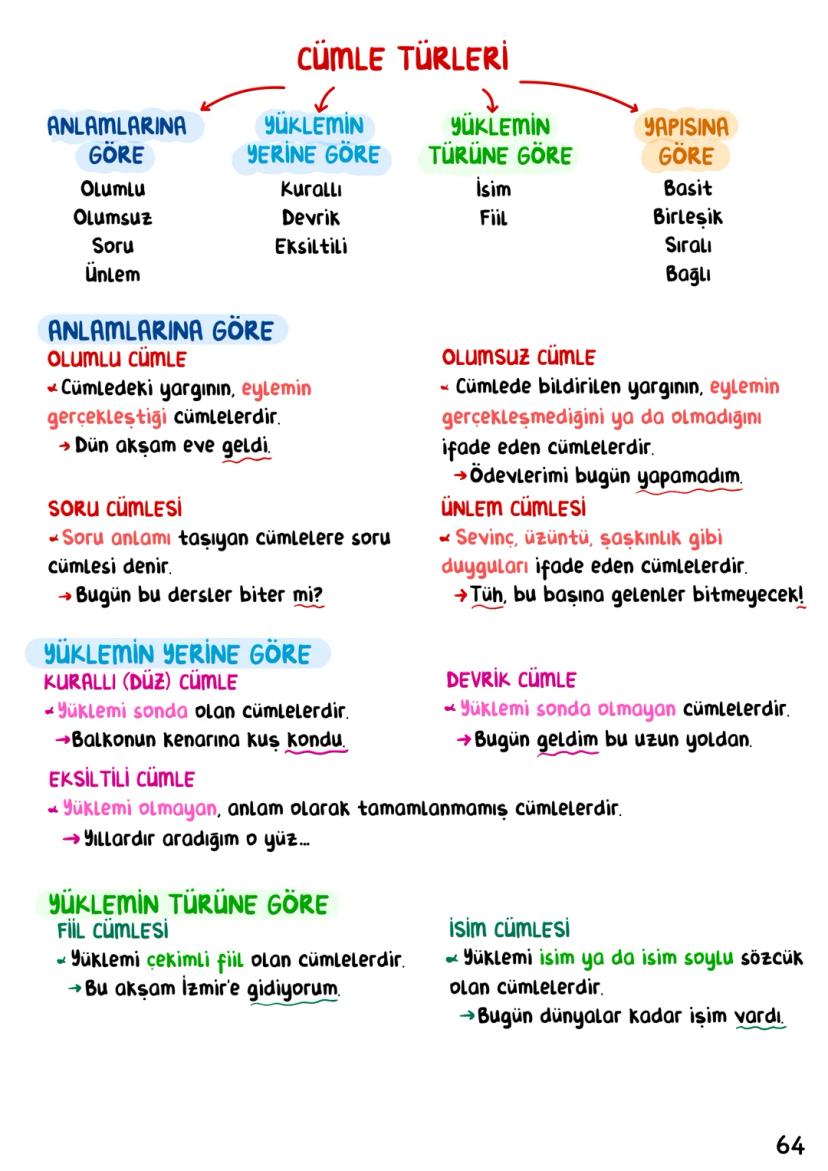 CÜMLE TÜRLERİ
ANLAMLARINA
GÖRE
Olumlu
Olumsuz
Soru
Ünlem
YÜKLEMİN
YERİNE GÖRE
Kurallı
Devrik
Eksiltili
YÜKLEMİN
TÜRÜNE GÖRE
İsim
Fiil
YAPISINA
GÖRE
Basit
Birleşik
Sıralı
Bağlı
ANLAMLARINA GÖRE
OLUMLU CÜMLE
Cümledeki yargının, eylemin
gerçekleştiği cümlelerdir.
→ Dün akşam eve geldi.
OLUMSUZ CÜMLE
Cümlede bildirilen yargının, eylemin
gerçekleşmediğini ya da olmadığını
ifade eden cümlelerdir.
→ Ödevlerimi bugün yapamadım.
SORU CÜMLESİ
Soru anlamı taşıyan cümlelere soru
cümlesi denir.
→ Bugün bu dersler biter mi?
ÜNLEM CÜMLESİ
Sevinç, üzüntü, şaşkınlık gibi
duyguları ifade eden cümlelerdir.
→ Tüh, bu başına gelenler bitmeyecek!
YÜKLEMİN YERİNE GÖRE
KURALLI (DÜZ) CÜMLE
Yüklemi sonda olan cümlelerdir.
→ Balkonun kenarına kuş kondu.
DEVRİK CÜMLE
Yüklemi sonda olmayan cümlelerdir.
→ Bugün geldim bu uzun yoldan.
EKSİLTİLİ CÜMLE
Yüklemi olmayan, anlam olarak tamamlanmamış cümlelerdir.
→ Yıllardır aradığım o yüz...
YÜKLEMİN TÜRÜNE GÖRE
FİİL CÜMLESİ
Yüklemi çekimli fiil olan cümlelerdir.
→ Bu akşam İzmir'e gidiyorum.
İSİM CÜMLESİ
Yüklemi isim ya da isim soylu sözcük
olan cümlelerdir.
→ Bugün dünyalar kadar işim vardı.
64